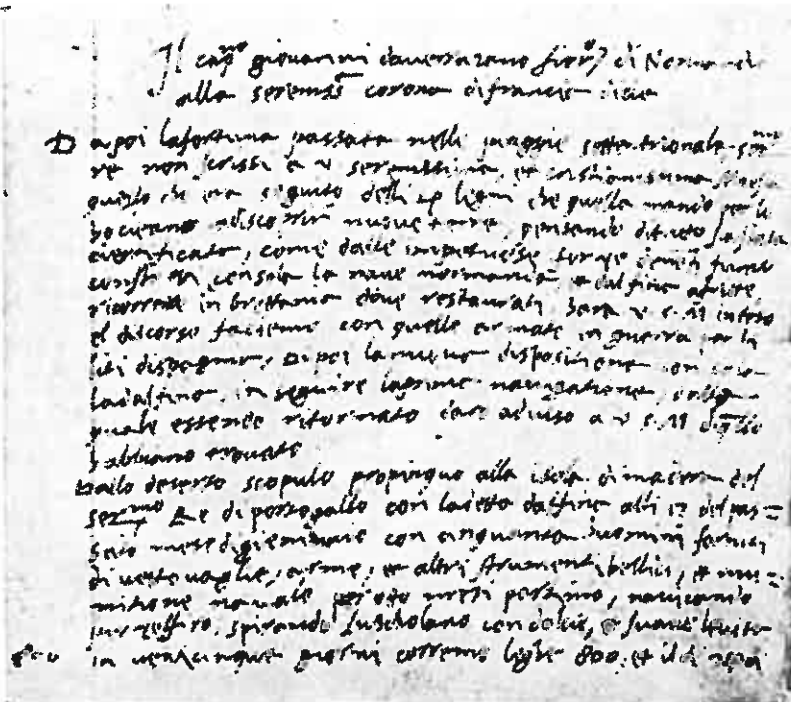 Il cap.no giovanni da verrazano fior.no di Normandia
alla sereniss corona di francia dicie
Dapoi la fortuna passata nelli spiaggie settentrionale
re non scrissi a v serenissima, et cristianissima
quello che era seguito delli legni che quella mando per lo
oceano ad iscoprir nuove terre, pensando di tutto
certificata, come dalle impetuose forze de venti fumo
constretti con sola la nave normanda e dalfina afflite
ricorrere in brettania dove restaurati, hara v s M inteso
el discorso facemo con quelle armate in guerra per li
liti dispagna, Dipoi la nuova disposizione con sola
la dalfina, in seguire la prima navigatione, dalla
quale essendo ritornato daro adviso a v s M di quello
habbiamo trovato
Dallo deserto scopulo propinquo alla isola di madera del
ser.mo Re di portogallo con la detta dalfina alli 17 del pas=
sato mese di giennaio con cinquanta huomini forniti
di vettovaglie, arme, et altri strumenti bellici, et mu=
nitione navale per otto mesi partimo, navicando
per zeffiro, spirando subsolano con dolcie, e suave levita
in venticinque giorni corremo leghe 800, et il di